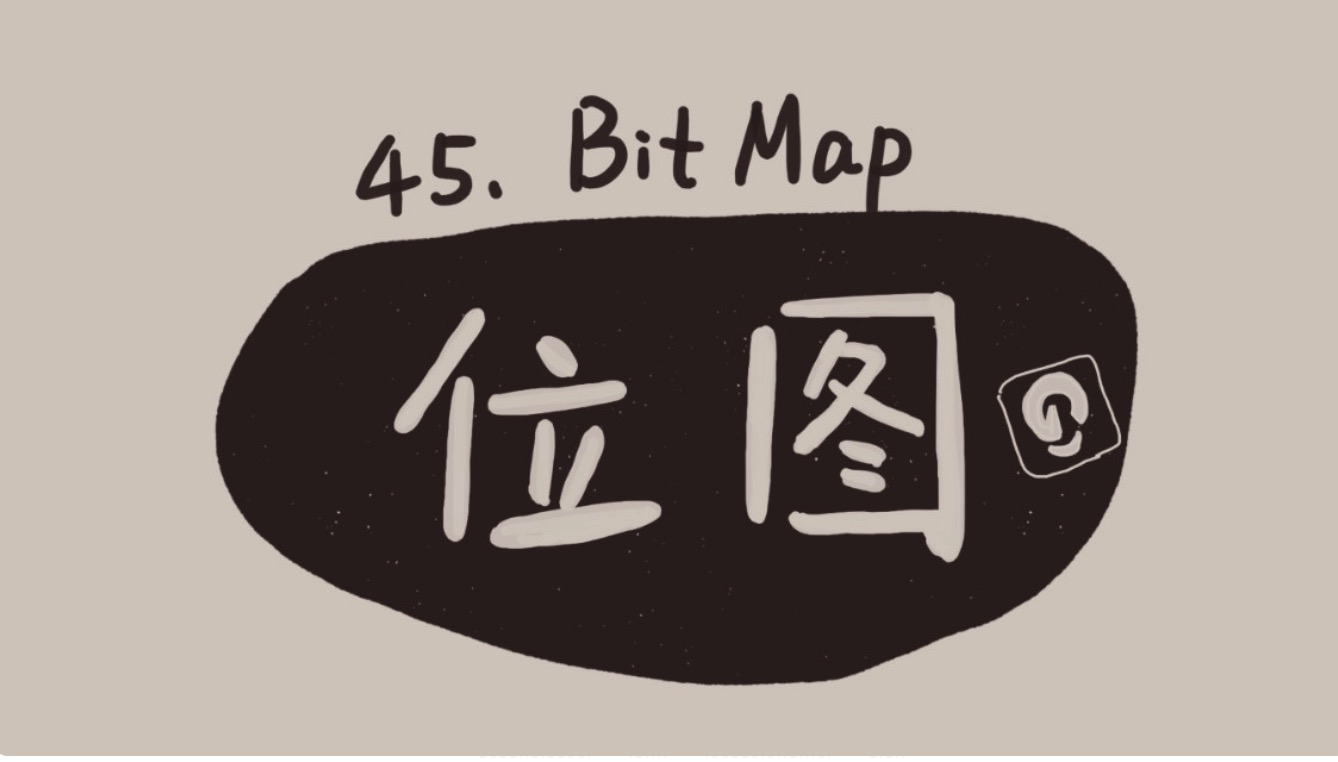 45. Bit Map
位图